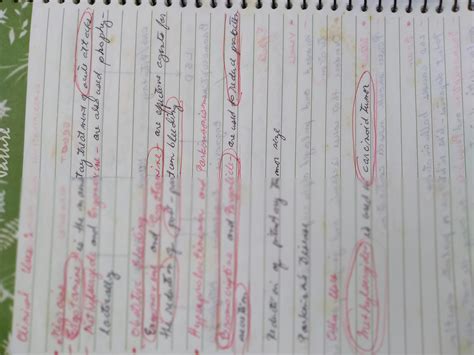 Clinical Uses :
Migraine
Ergotamine is the mainstay treatment of acute attacks
Methysergide and Ergonovine - are also used prophy-
lactically
Obstetric bleeding
Ergonovine and Ergotamine - are effective agents for
the reduction of post-partum bleeding
Hyperprolactinemia and Parkinsonism
Bromocriptine and Pergolide are used to reduce prolactin
secretion
Reduction of pituitary tumor size
Parkinson's Disease
Other Uses
Methysergide is used in carcinoid tumor